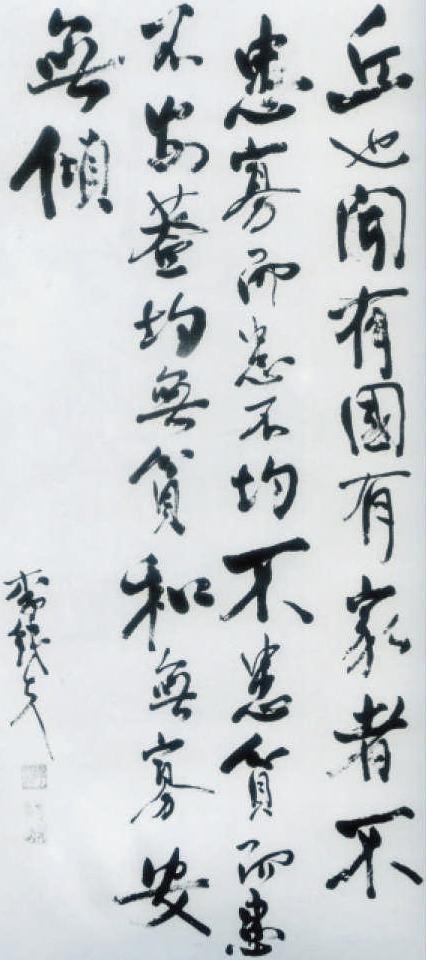 丘也聞有國有家者不
患寡而患不均不患貧而患
不安蓋均無貧和無寡安
無傾
李鐵夫